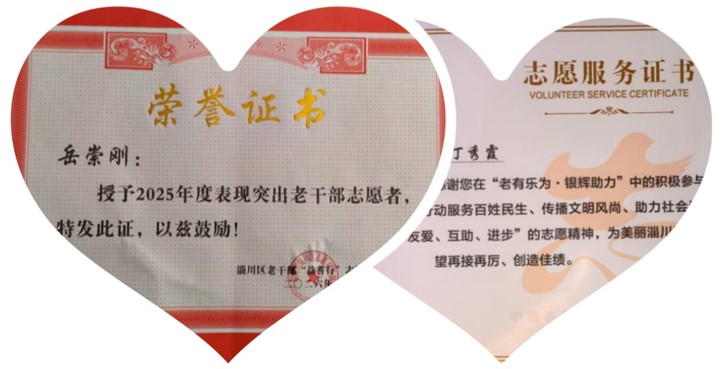 荣誉证书
岳崇刚：
授予2025年度表现突出老干部志愿者，
特发此证，以兹鼓励！
淄川区老干部“益善行”志
二〇二六年
志愿服务证书
VOLUNTEER SERVICE CERTIFICATE
丁秀霞
感谢您在“老有乐为·银辉助力”中的积极参与
行动服务百姓民生、传播文明风尚、助力社会
友爱、互助、进步”的志愿精神，为美丽淄川
望再接再厉、创造佳绩。
中国志